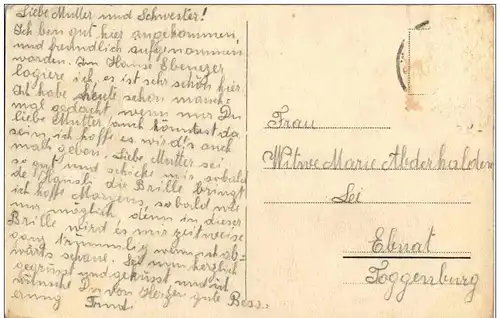 Liebe Mutter und Schwester!
Ich bin gut hier angekommen,
und freundlich aufgenommen
worden. Im Hause Ebenezer
logiere ich, es ist sehr schön hier.
Ich habe heute schon manch-
mal gedacht, wenn nur Du
liebe Mutter, auch könntest da
sein, ich hoffe es wird's auch
mals geben. Liebe Mutter sei
so gut und schicke mir, sobald
die Brille bringt
ich hoffe Morgens, so bald wie
nur möglich, denn in dieser
Brille wird es mir zeitweise
ganz wenn ich ab-
wärts schaue. Sei nun herzlich
gegrüsst und geküsst, und ich
wünsche Dir von Herzen gute Bess-
erung Trudi.
Frau
Witwe Marie Abderhalden
Lei
Ebnat
Toggenburg